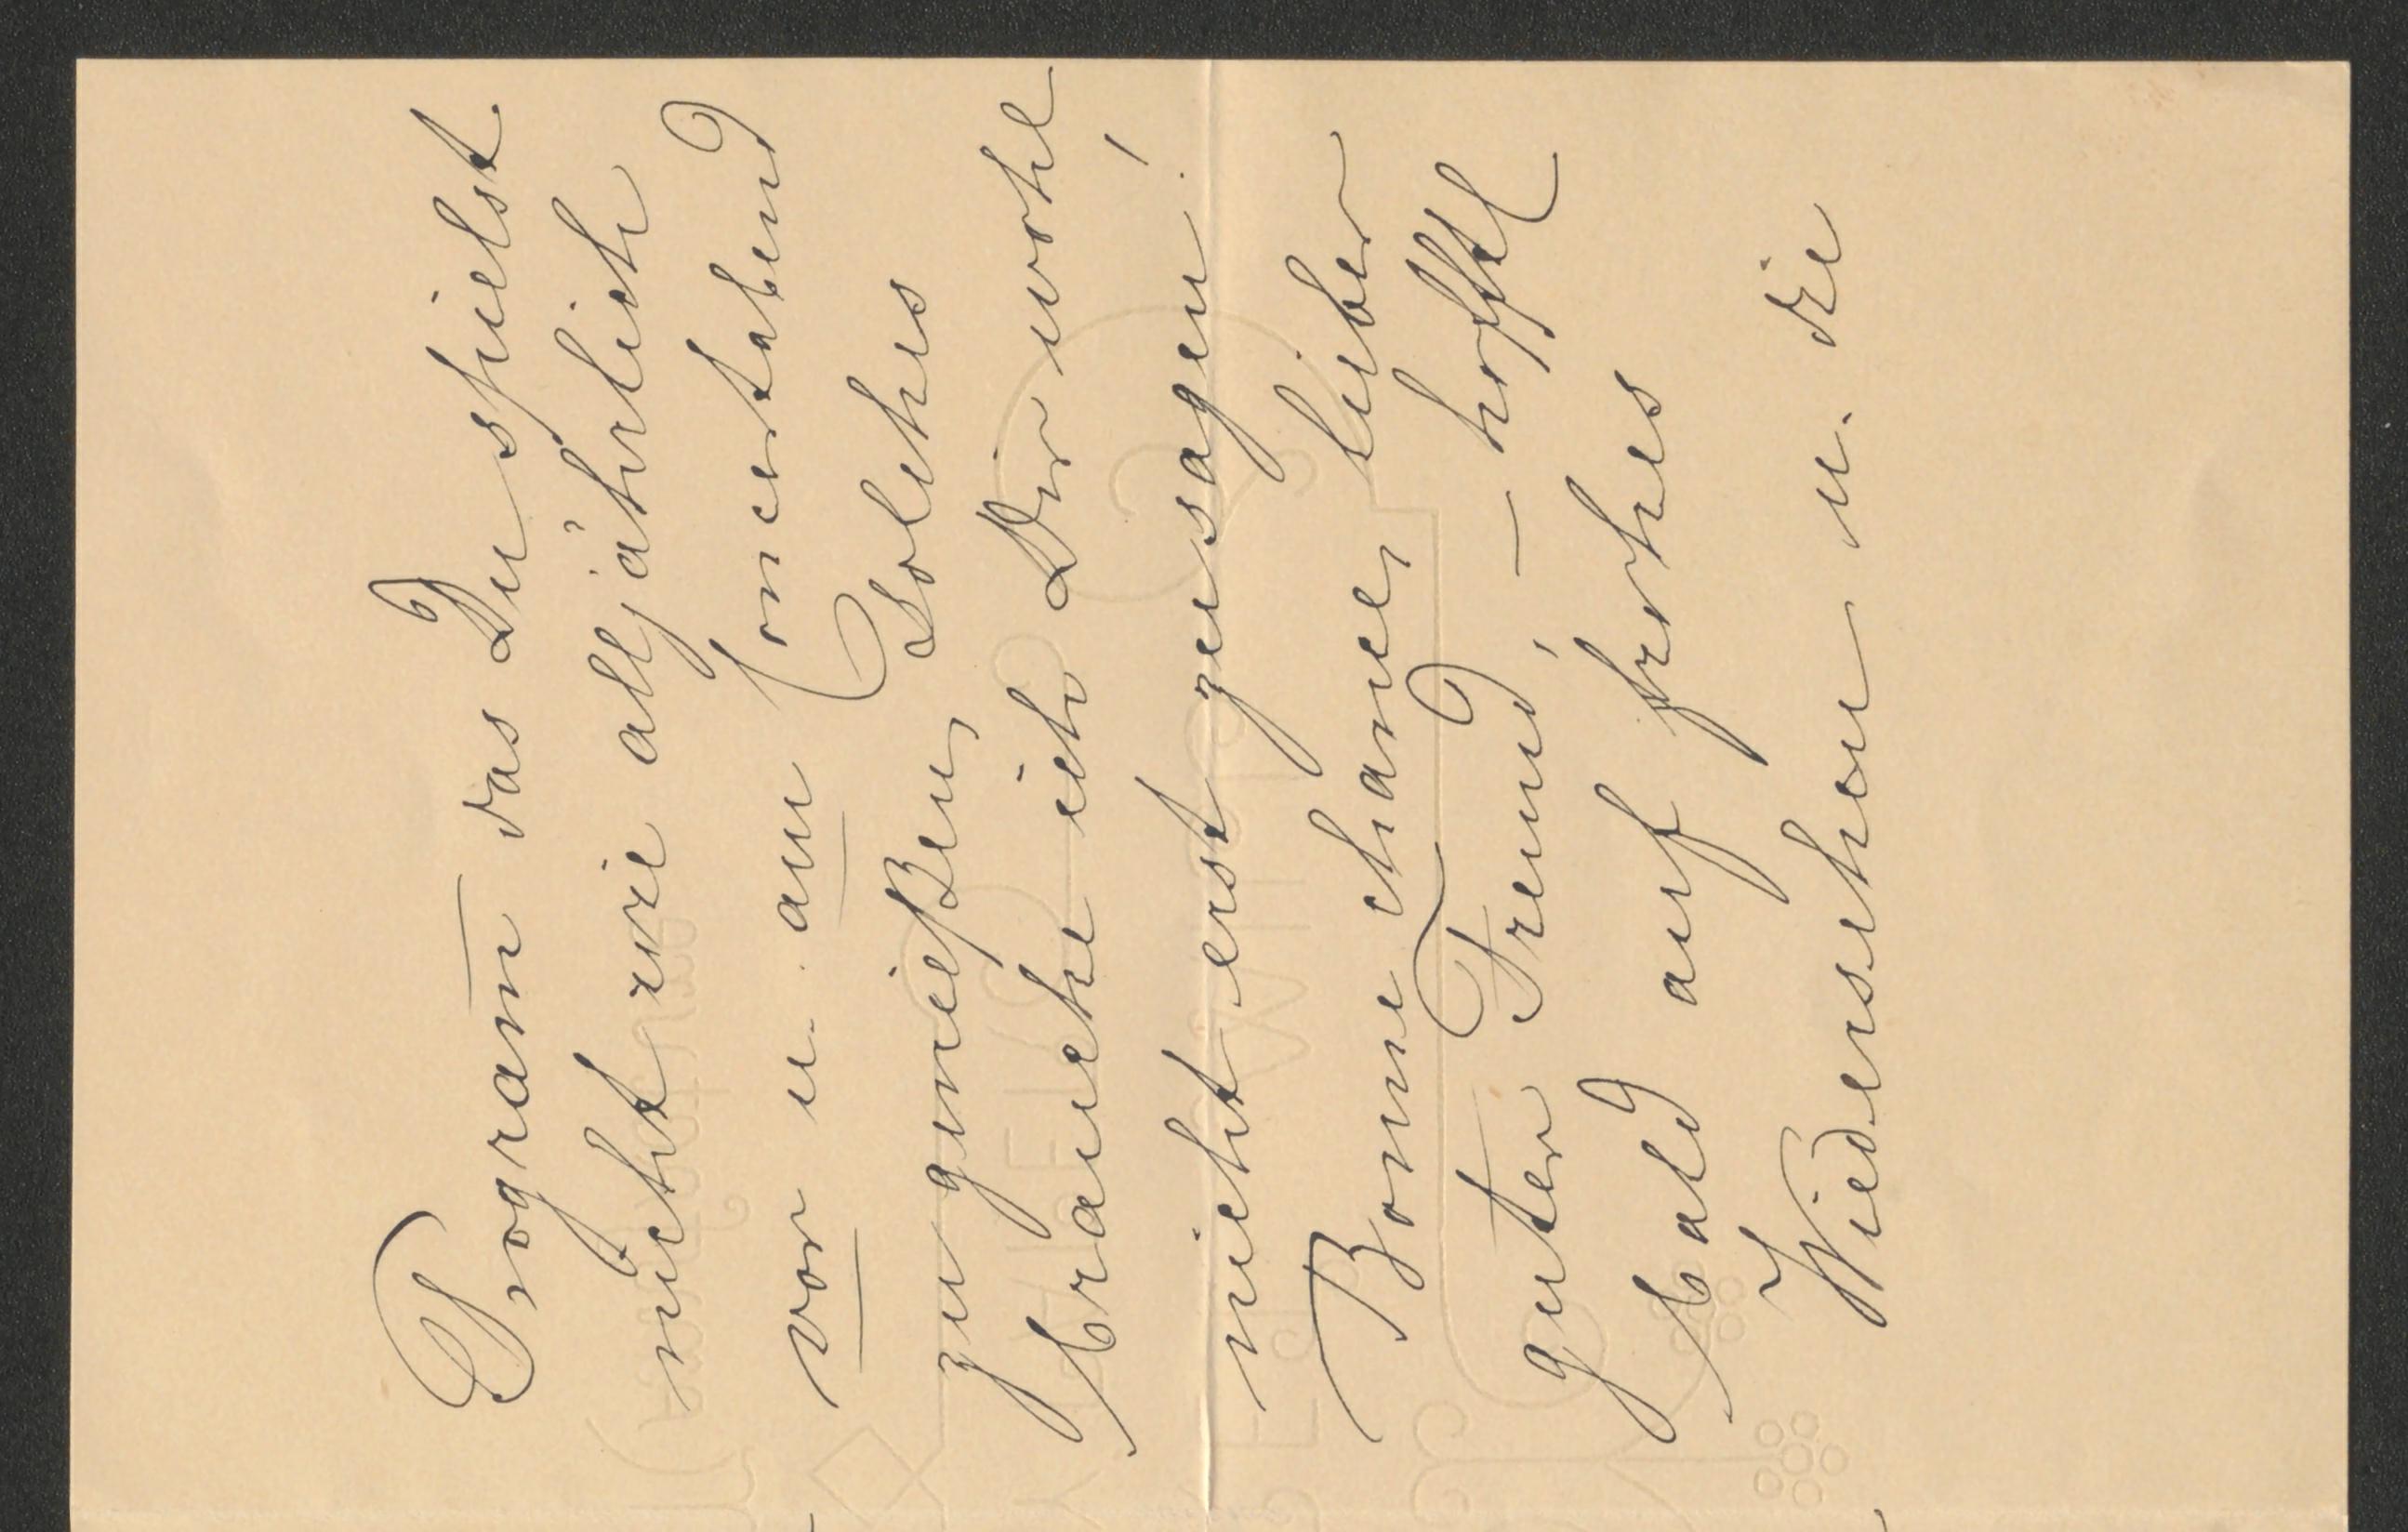 Program̅ das Du spielst
nicht wie alljährlich
vor u. am Concertabend
zu genießen, Solches
brauche ich Dir wohl
nicht erst zu sagen!
Bonne chance, lieber
guter Freund, – hofftl
bald auf frohes
Wiedersehen u. die